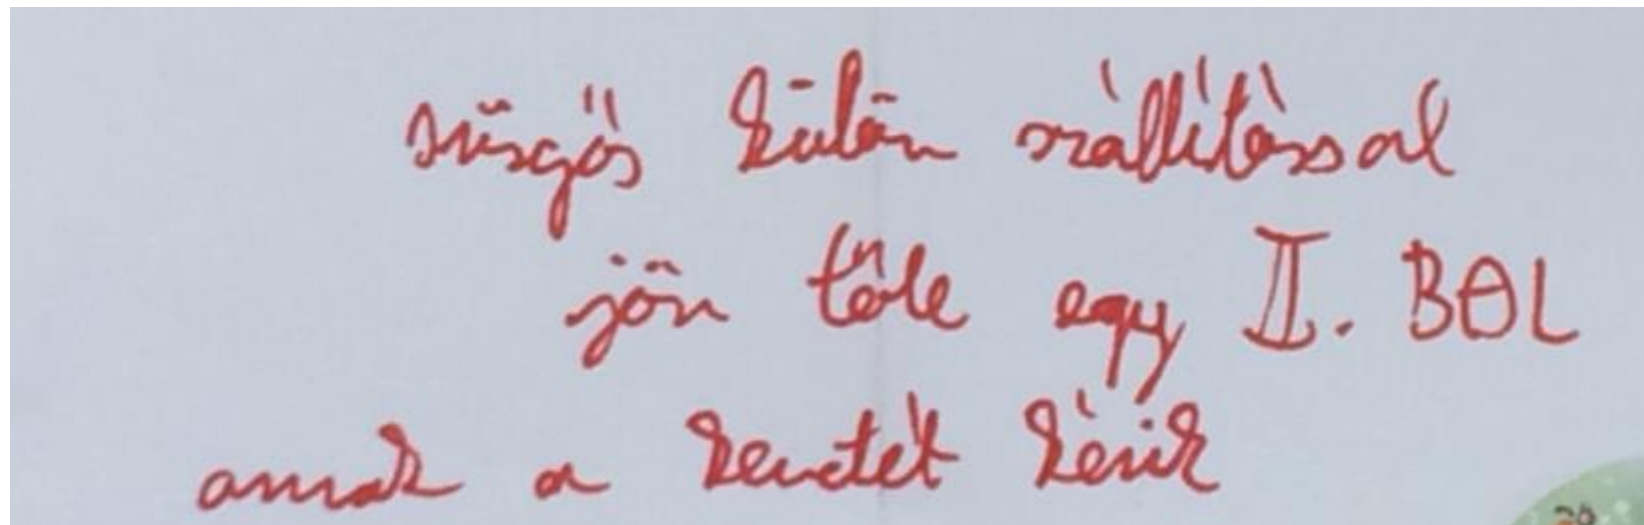 sürgős külön szállítással
jön tőle egy II. BOL
annak a kezdetét kérik